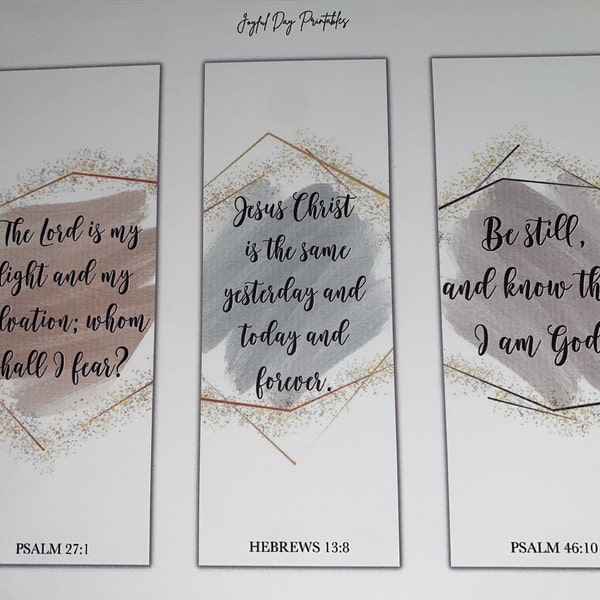 Joyful Day Printables
The Lord is my
light and my
lvation; whom
hall I fear?
PSALM 27:1
Jesus Christ
is the same
yesterday and
today and
forever.
HEBREWS 13:8
Be still,
and know th
I am God
PSALM 46:10